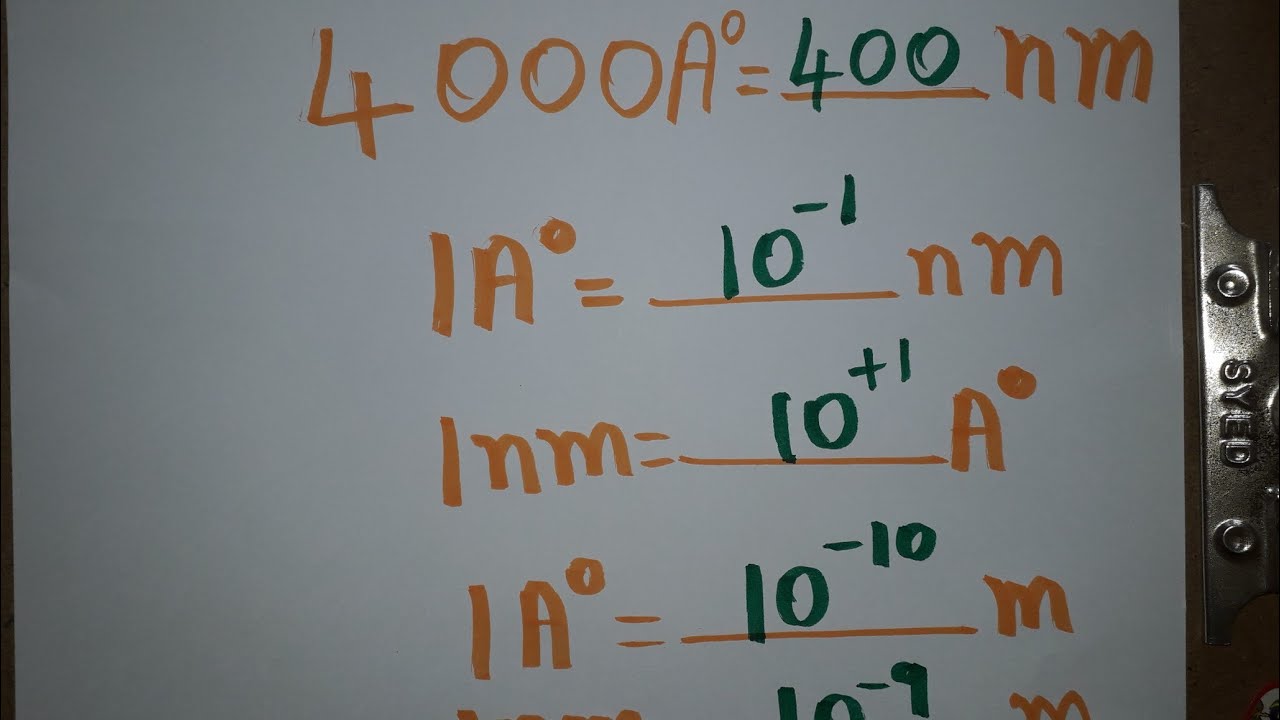 4000A° = 400 nm
1A° = 10⁻¹ nm
1nm = 10⁺¹ A°
1A° = 10⁻¹⁰ m
1nm 10⁻⁹ m
SYED